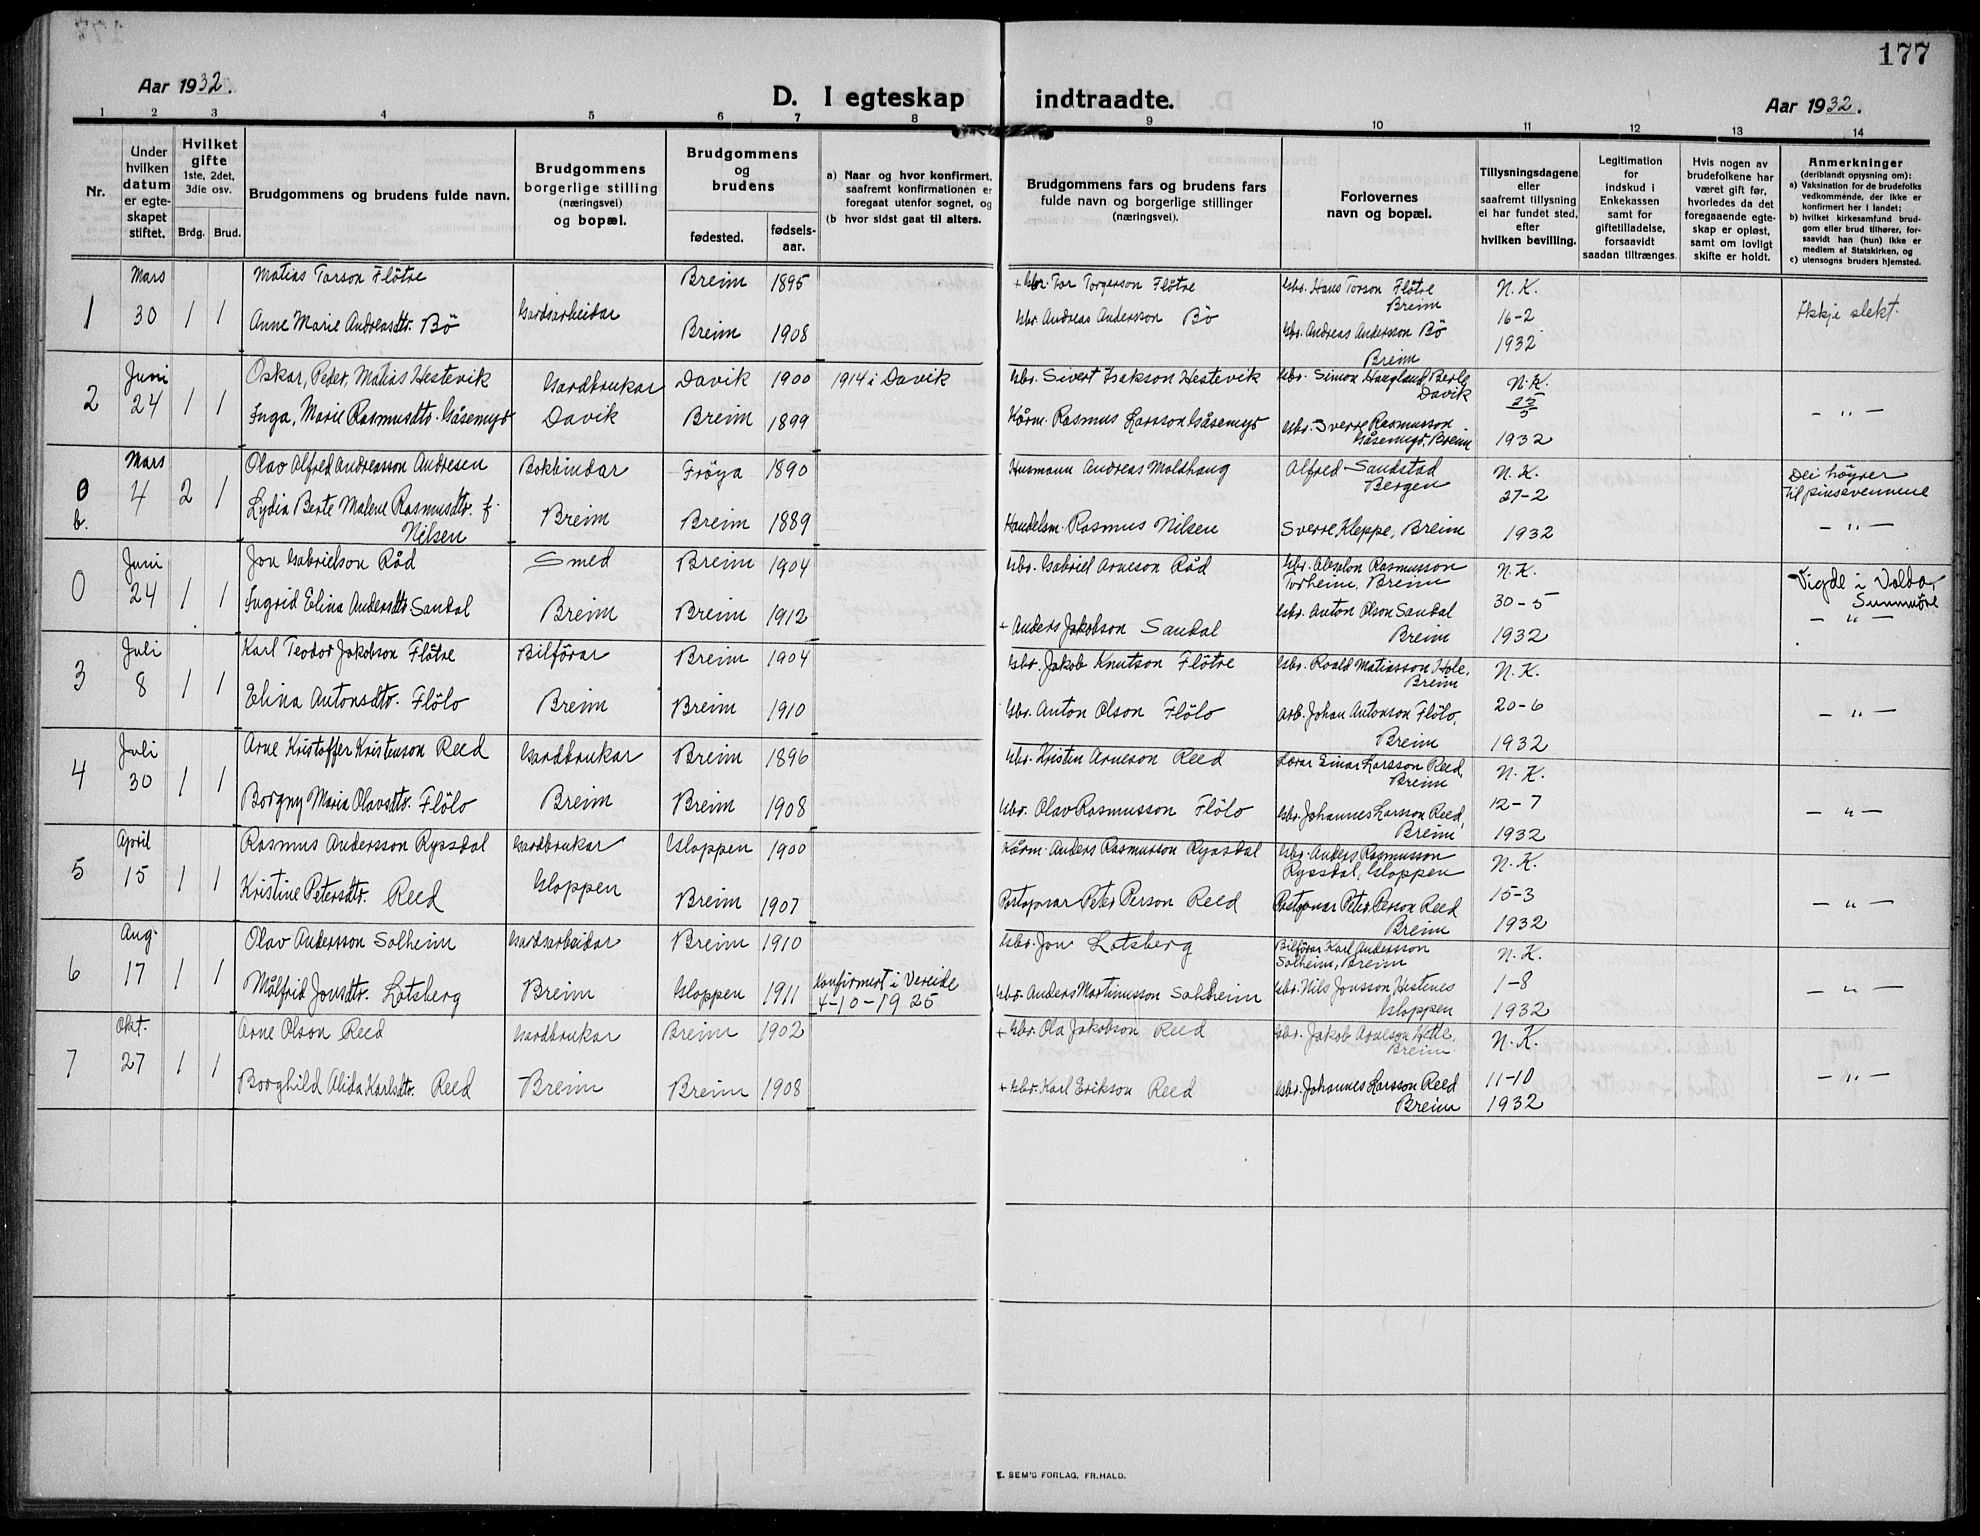 177
Aar 1932.
D. I egteskap indtraadte.
Aar 1932.
1 2 3 4 5 6 7 8 9 10 11 12 13 14
Nr.
Under hvilken datum er egteskapet stiftet.
Hvilket gifte 1ste, 2det, 3die osv.
Brdg. Brud.
Brudgommens og brudens fulde navn.
Brudgommens borgerlige stilling (næringsvei) og bopæl.
Brudgommens og brudens
fødested. fødselsaar.
a) Naar og hvor konfirmert, saafremt konfirmationen er foregaat utenfor sognet, og
(b hvor sidst gaat til alters.
Brudgommens fars og brudens fars fulde navn og borgerlige stillinger (næringsvei).
Forlovernes navn og bopæl.
Tillysningsdagene eller saafremt tillysning ei har fundet sted, efter hvilken bevilling.
Legitimation for indskud i Enkekassen samt for giftetilladelse, forsaavidt saadan tiltrænges.
Hvis nogen av brudefolkene har været gift før, hvorledes da det foregaaende egteskap er opløst, samt om lovligt skifte er holdt.
Anmerkninger (deriblandt oplysning om):
a) Vaksination for de brudefolks vedkommende, der ikke er konfirmert her i landet;
b) hvilket kirkesamfund brudgom eller brud tilhører, forsaavidt han (hun) ikke er medlem av Statskirken, og
c) utensogns bruders hjemsted.
1 Mars 30 1 1 Matias Torson Flötre Gardsarbeidar Breim 1895 + Gbr. Tor Torgerson Flötre Gbr. Hans Torson Flötre Breim N.K. 16-2 1932 Ikkje slekt.
Anne Marie Andreasdtr. Bö Breim 1908 Gbr. Andreas Andersson Bö Gbr. Andreas Andersson Bö Breim
2 Juni 24 1 1 Oskar, Peder, Matias Hestevik Gardbrukar Davik 1900 1914 i Davik Gbr. Sivert Isakson Hestevik Gbr. Simon Haugland, Berle Davik N.K. 25/5 1932
Inga, Marie Rasmusdtr. Gåsemyr Davik Breim 1899 Kårm. Rasmus Larsson Gåsemyr Gbr. Sverre Rasmusson Gåsemyr, Breim - " -
0 b. Mars 4 2 1 Olav Alfred Andreasson Andresen Bokbindar Fröya 1890 Husmann Andreas Moldhaug Alfred Sandstad Bergen N.K. 27-2 1932 Dei höyrer til pinsevennene
Lydia Berte Malene Rasmusdtr. f. Nilsen Breim Breim 1889 Handelsm. Rasmus Nilsen Sverre Kleppe, Breim - " -
0 Juni 24 1 1 Jon Gabrielson Råd Smed Breim 1904 Gbr. Gabriel Arneson Råd Gbr. Absalon Rasmusson Torheim, Breim N.K. 30-5 1932 Vigde i Volda, Sunnmöre
Ingrid Elina Andersdtr. Sandal Breim Breim 1912 + Anders Jakobson Sandal Gbr. Anton Olson Sandal Breim - " -
3 Juli 8 1 1 Karl Teodor Jakobson Flötre Bilförar Breim 1904 Gbr. Jakob Knutson Flötre Gbr. Roald Matiasson Hole, Breim N.K. 20-6 1932
Elina Antonsdtr. Flölo Breim Breim 1910 Gbr. Anton Olson Flölo Arb. Johan Antonson Flölo, Breim - " -
4 Juli 30 1 1 Arne Kristoffer Kristenson Reed Gardbrukar Breim 1896 Gbr. Kristen Arneson Reed Lærar Einar Larsson Reed, Breim N.K. 12-7 1932
Borgny Maria Olavsdtr. Flölo Breim Breim 1908 Gbr. Olav Rasmusson Flölo Gbr. Johannes Larsson Reed, Breim - " -
5 April 15 1 1 Rasmus Andersson Ryssdal Gardbrukar Gloppen 1900 Kårm. Anders Rasmusson Ryssdal Gbr. Anders Rasmusson Ryssdal, Gloppen N.K. 15-3 1932
Kristine Petersdtr. Reed Gloppen Breim 1907 Postopnar Peter Person Reed Postopnar Peter Person Reed Breim - " -
6 Aug. 17 1 1 Olav Andersson Solheim Gardsarbeidar Breim 1910 Gbr. Jon Lotsberg Bilförar Karl Andersson Solheim, Breim N.K. 1-8 1932
Målfrid Jonsdtr. Lotsberg Breim Gloppen 1911 Konfirmert i Vereide 4-10-1925 Gbr. Anders Martinusson Solheim Gbr. Nils Jonsson Hestenes Gloppen - " -
7 Okt. 27 1 1 Arne Olson Reed Gardbrukar Breim 1902 + Gbr. Ola Jakobson Reed Gbr. Jakob Arneson Hetle, Breim N.K. 11-10 1932
Borghild Alida Karlsdtr. Reed Breim Breim 1908 + Gbr. Karl Erikson Reed Gbr. Johannes Larsson Reed Breim - " -
E. SEM'S FORLAG, FR.HALD.